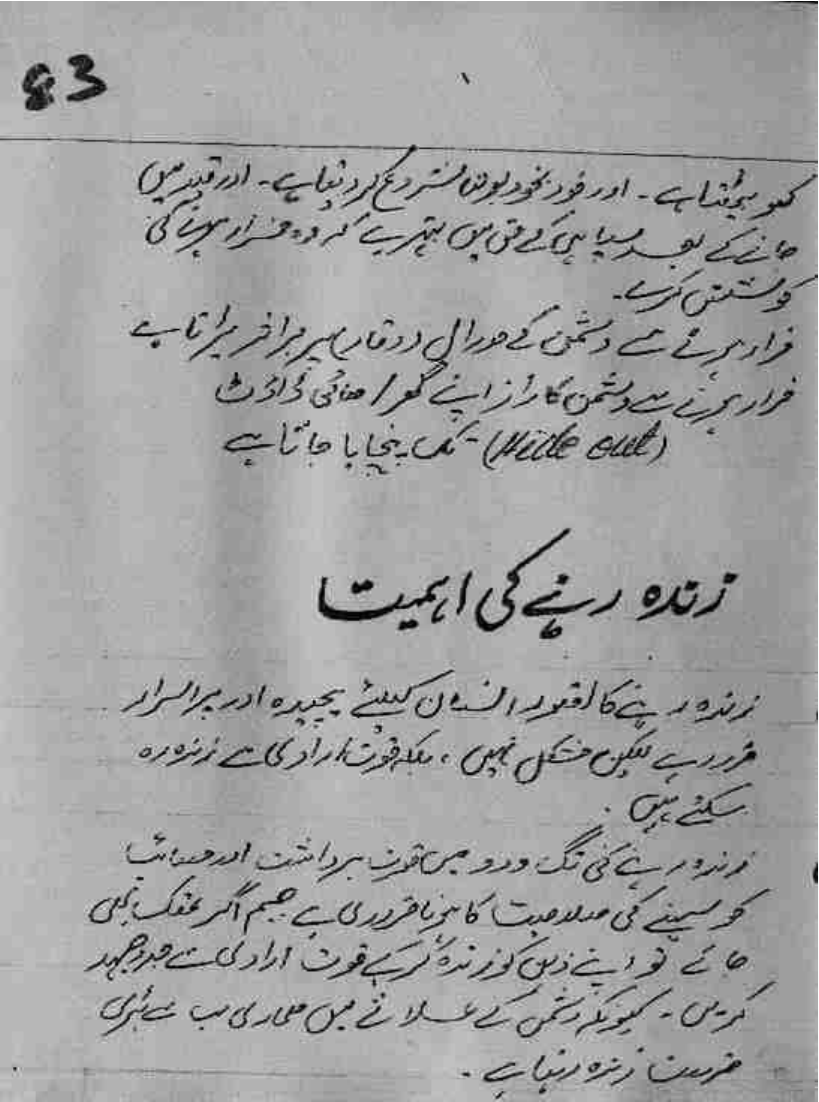 83
کھو بیٹھتا ہے ۔ اور خود بخود بولنا شروع کر دیتا ہے ۔ اور قید میں
جانے کے بعد سپاہی کے حق میں بہتر ہے کہ وہ فرار ہونے کی
کوشش کرے ۔
فرار ہونے سے دشمن کے مورال و وقار پر برا اثر پڑتا ہے
فرار ہونے سے دشمن کا راز اپنے گھر / ھائی ڈاؤٹ
(Hide out) - تک پہنچایا جاتا ہے
زندہ رہنے کی اہمیت
زندہ رہنے کا تصور انسان کیلئے پیچیدہ اور پراسرار
ضرور ہے لیکن مشکل نہیں ، بلکہ قوت ارادی سے زندہ رہ
سکتے ہیں .
زندہ رہنے کی تگ و دو میں قوت برداشت اور مصائب
کو سہنے کی صلاحیت کا ہونا ضروری ہے جسم اگر تھک بھی
جائے تو اپنے ذہن کو زندہ کر کے قوت ارادی سے جدوجہد
کریں - کیونکہ دشمن کے علاقے میں ہماری سب سے بڑی
ضرورت زندہ رہنا ہے -